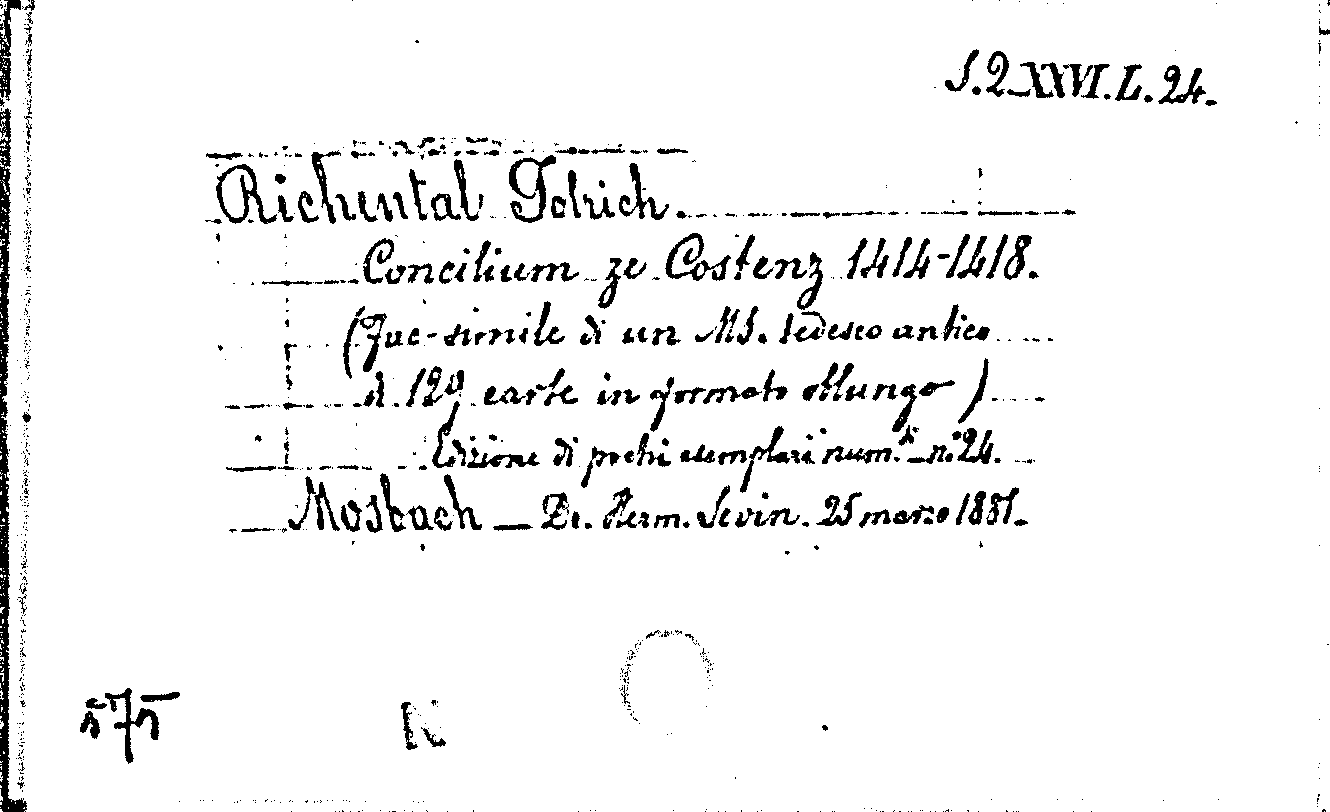 S.2.XXVI.L.24.
Richental Golrich.
Concilium ze Costenz 1414-1418.
(Fac-simile di un MS. tedesco antico
di 129 carte in formato oblungo)
Edizione di pochi esemplari num.ti – n.° 24.
Mosbach – Dr. Herm. Sevin. 25 marzo 1881.
575
N